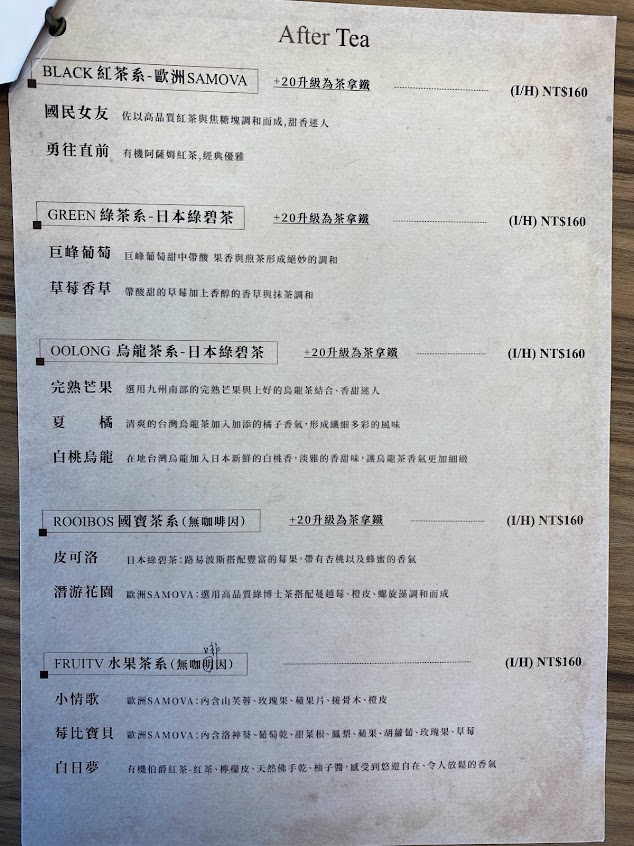 After Tea
BLACK 紅茶系-歐洲SAMOVA +20升級為茶拿鐵 (I/H) NT$160
國民女友 佐以高品質紅茶與焦糖塊調和而成,甜香迷人
勇往直前 有機阿薩姆紅茶,經典優雅
GREEN 綠茶系-日本綠碧茶 +20升級為茶拿鐵 (I/H) NT$160
巨峰葡萄 巨峰葡萄甜中帶酸 果香與煎茶形成絕妙的調和
草莓香草 帶酸甜的草莓加上香醇的香草與抹茶調和
OOLONG 烏龍茶系-日本綠碧茶 +20升級為茶拿鐵 (I/H) NT$160
完熟芒果 選用九州南部的完熟芒果與上好的烏龍茶結合、香甜迷人
夏 橘 清爽的台灣烏龍茶加入加添的橘子香氣,形成纖細多彩的風味
白桃烏龍 在地台灣烏龍加入日本新鮮的白桃香,淡雅的香甜味,讓烏龍茶香氣更加細緻
ROOIBOS 國寶茶系(無咖啡因) +20升級為茶拿鐵 (I/H) NT$160
皮可洛 日本綠碧茶:路易波斯搭配豐富的莓果,帶有杏桃以及蜂蜜的香氣
潛游花園 歐洲SAMOVA:選用高品質綠博士茶搭配蔓越莓、橙皮、螺旋藻調和而成
啡
FRUITV 水果茶系(無咖明因) (I/H) NT$160
小情歌 歐洲SAMOVA:內含山芙蓉、玫瑰果、蘋果片、接骨木、橙皮
莓比寶貝 歐洲SAMOVA:內含洛神葵、葡萄乾、甜菜根、鳳梨、蘋果、胡蘿蔔、玫瑰果、草莓
白日夢 有機伯爵紅茶-紅茶、檸檬皮、天然佛手乾、柚子醬,感受到悠遊自在、令人放鬆的香氣